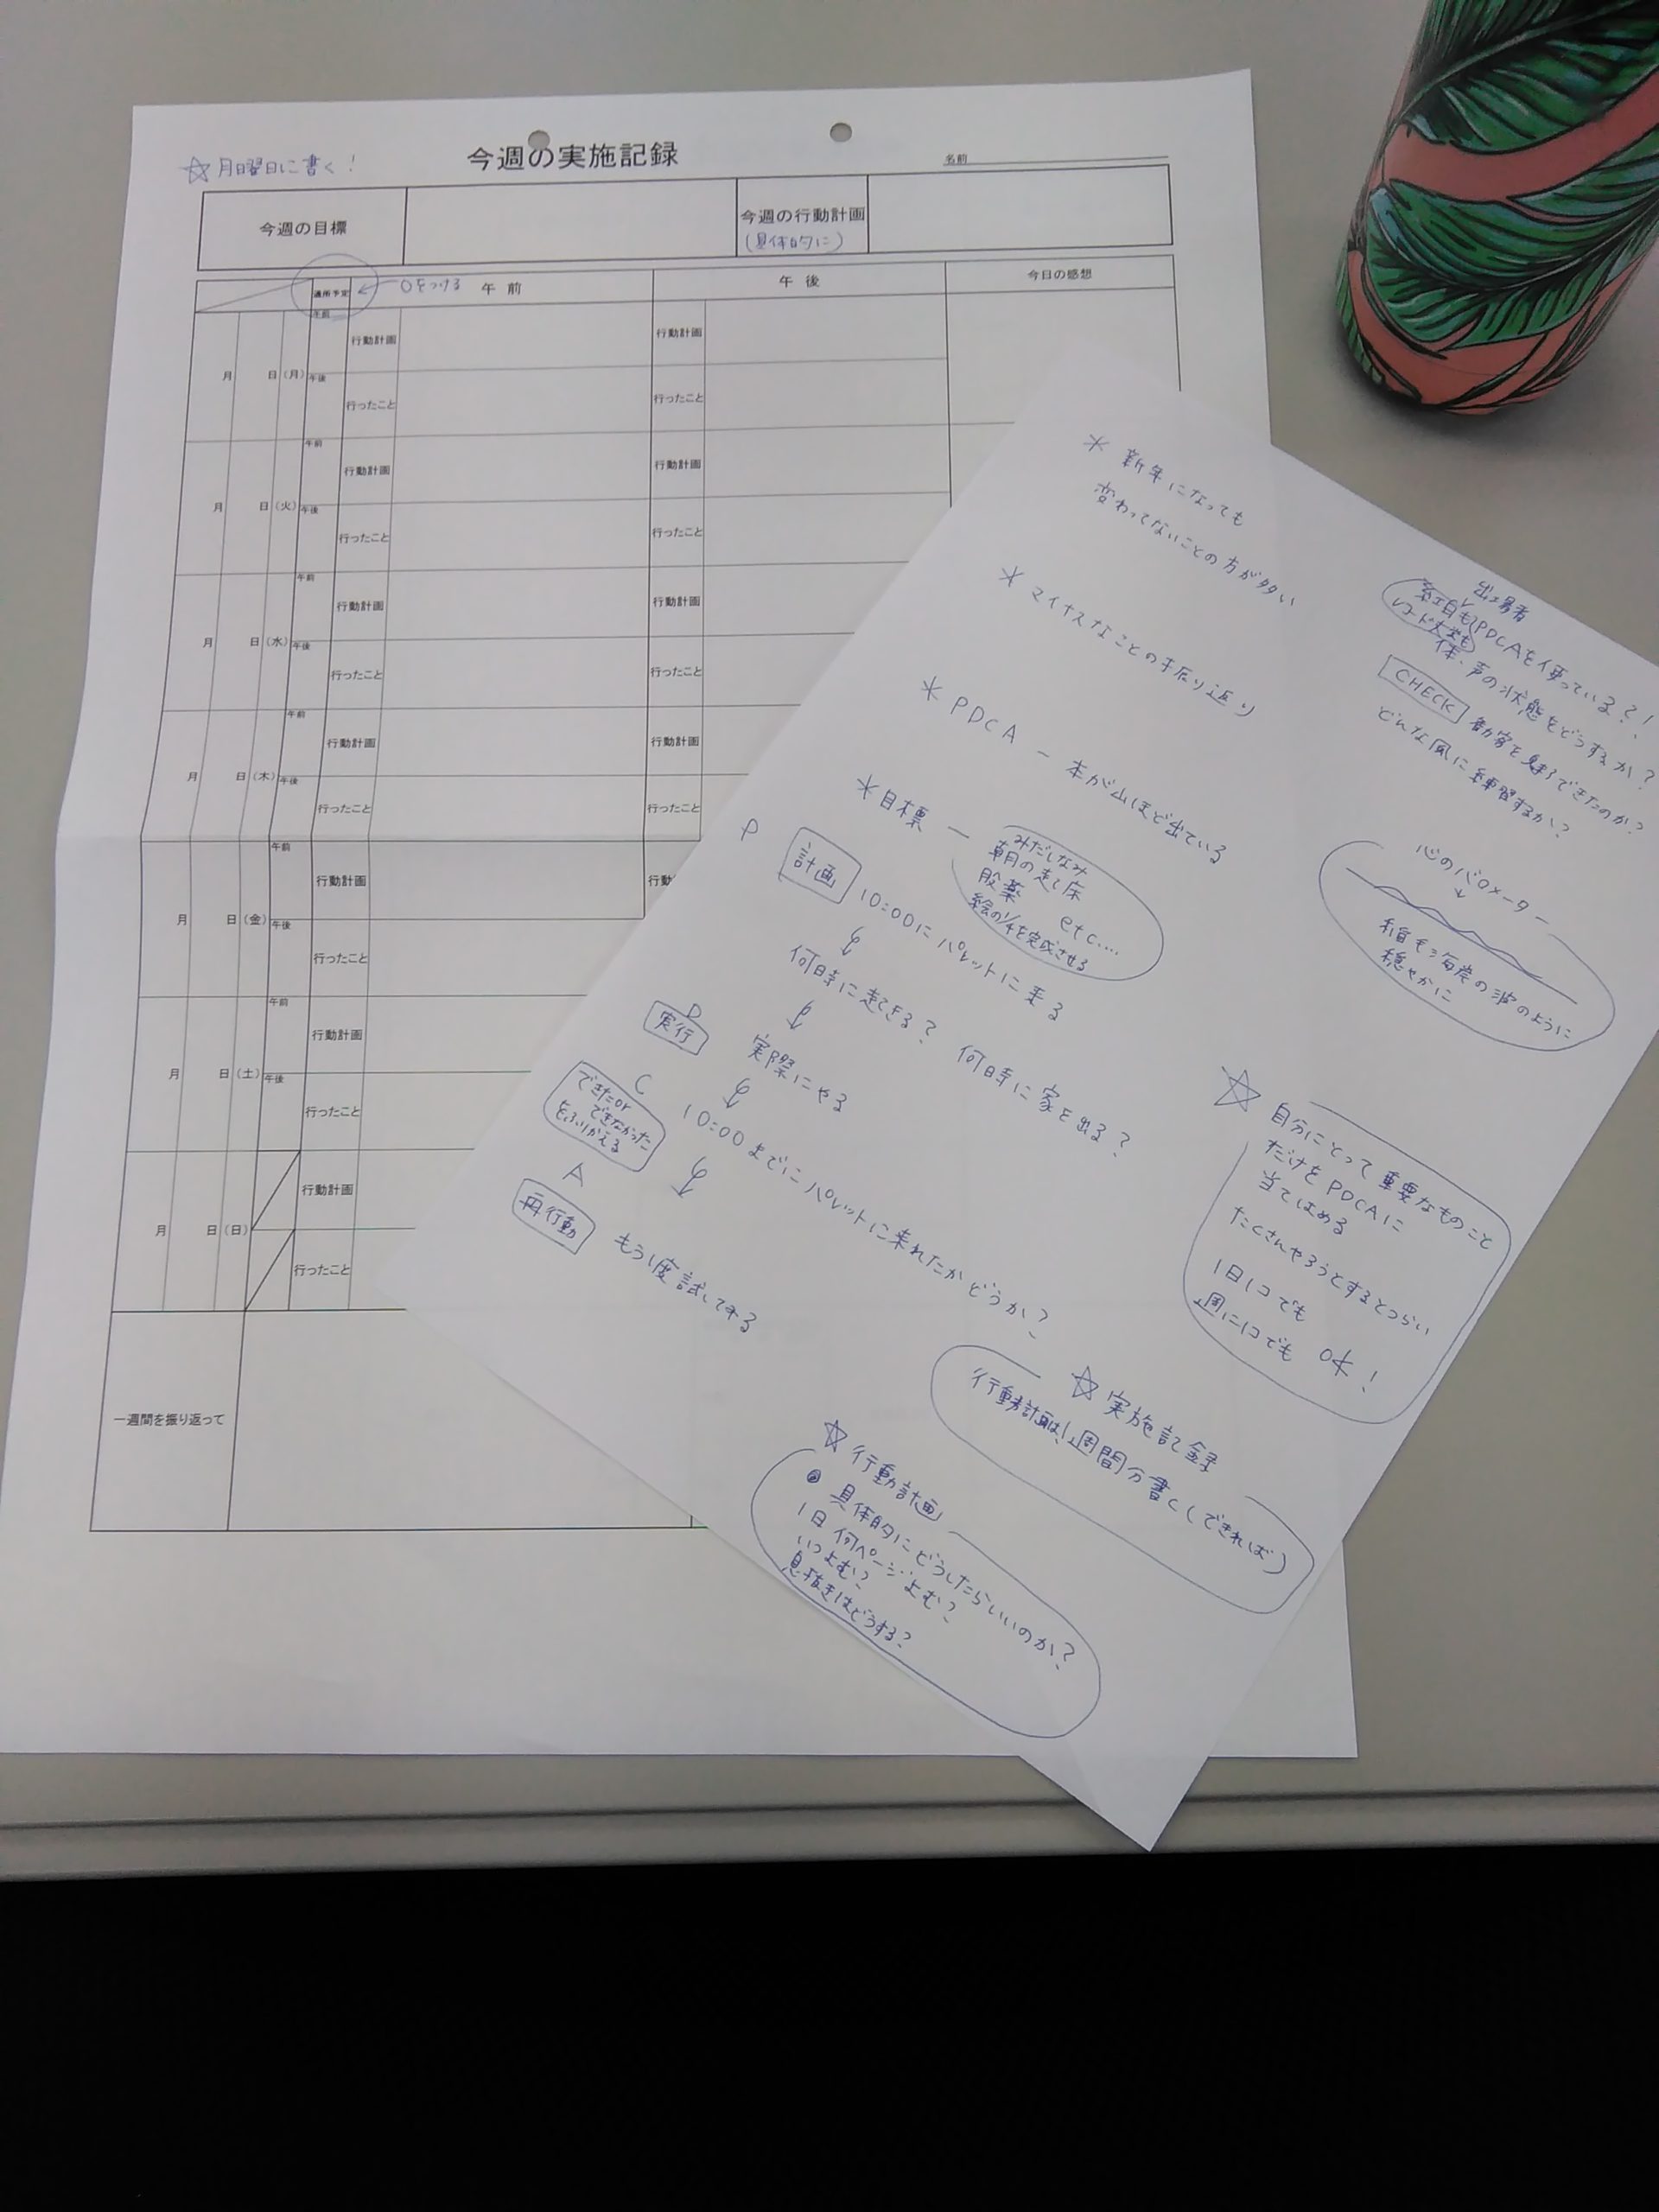 ☆月曜日に書く!
今週の実施記録
名前
今週の目標
今週の行動計画
(具体的に)
通所予定
○をつける
午前
午後
今日の感想
月 日(月)
午前
午後
行動計画
行ったこと
行動計画
行ったこと
月 日(火)
午前
午後
行動計画
行ったこと
行動計画
行ったこと
月 日(水)
午前
午後
行動計画
行ったこと
行動計画
行ったこと
月 日(木)
午前
午後
行動計画
行ったこと
行動計画
行ったこと
月 日(金)
午前
午後
行動計画
行ったこと
行動
月 日(土)
午前
午後
行動計画
行ったこと
月 日(日)
行動計画
行ったこと
一週間を振り返って
* 新年になっても
変わってないことの方が多い
* マイナスなことの振り返り
* PDCA - 本が山ほど出ている
* 目標 -
みだしなみ
朝の起し床
服薬 etc....
絵の1/4を完成させる
P
計画
10:00にパレットに来る
↓
何時に起きる? 何時に家を出る?
↓
D
実行
実際にやる
↓
C
できたor
できなかった
をふりかえる
10:00までにパレットに来れたかどうか?
↓
A
再行動
もう1度試してみる
出場者
紅白も
レコード大賞も
PDCAを使っている?!
体、声の状態をどうするか?
CHECK 観客を魅了できたのか?
どんな風に練習するか?
心のバロメーター
↓
稲毛海岸の波のように
穏やかに
☆ 自分にとって重要なものごと
だけをPDCAに
当てはめる
たくさんやろうとするとつらい
1日1コでも
週に1コでも OK!
☆実施記録
行動計画は、1週間分書く(できれば)
☆行動計画
具体的にどうしたらいいのか?
1日何ページよむ?
いつよむ?
息抜きはどうする?